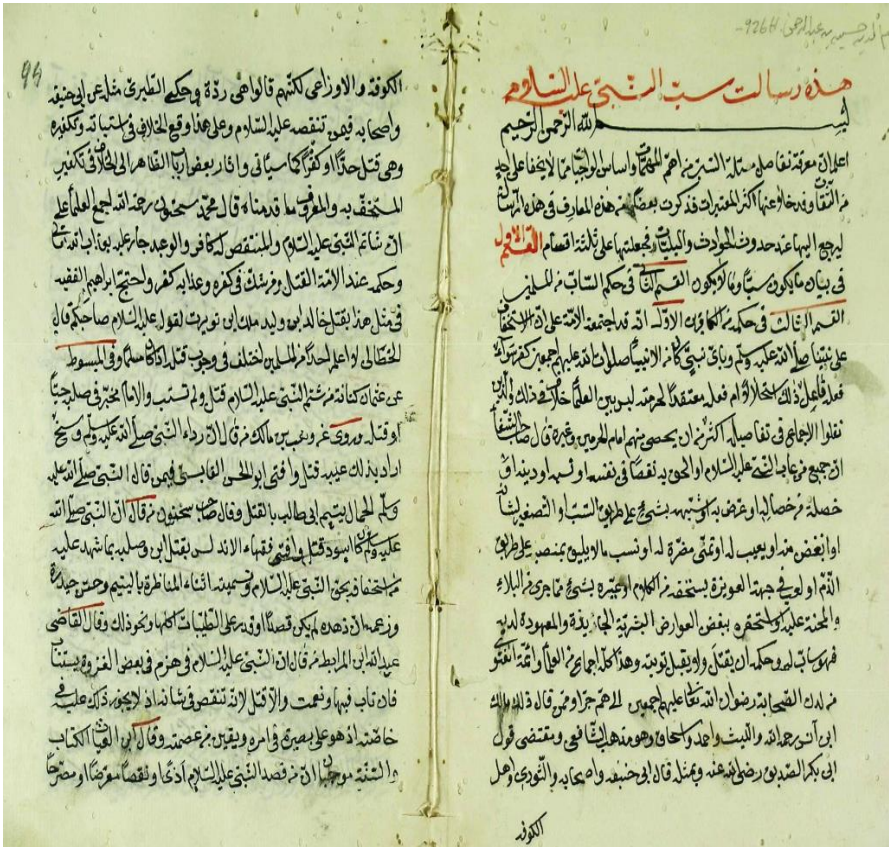 هذه رسالت سب النبي عليه السلام
بسم الله الرحمن الرحيم
اعلم ان معرفة تفاصيل مسئلة السب من اهم المهمات واساس الواجبات مما لا يخفا على احد
من الثقات وقد خلو عنها اكثر المعتبرات فذكرت بعضا من هذه المعارف في هذه الرسالة
ليرجع اليها عند حدوث الحوادث والبليات وجعلتها على ثلثة اقسام القسم الاول
في بيان ما يكون سبا وما لا يكون القسم الثاني في حكم الساب من المسلمين
القسم الثالث في حكمه من الكافرين الاول انه قد اجتمعة الامة على ان الاستخفاف
على نبينا صلى الله عليه وسلم وباى نبي كان من الانبياء صلوات الله عليهم اجمعين كفر سواء
فعله فاعل ذلك استحلالا ام فعله معتقدا لحرمته ليس بين العلماء خلاف في ذلك والذين
نقلوا الاجماع في تفاصيله اكثر من ان يحصى منهم امام الحرمين وغيره قال صاحب الشفا
ان جميع من عاب النبي عليه السلام او الحق به نقصا في نفسه او نسبه او دينه او
خصلة من خصاله او عرض به او شبهه بشئ على طريق السب او التصغير لشانه
او الغض منه او يعيب له او تمنى مضرة له او نسب ما لا يليق بمنصبه على طريق
الذم او في جهته العزيزة بسخفه من الكلام او عيره بشئ مما جرى من البلاء
والمحنة عليه او استحقره ببعض العوارض البشرية الجائزة والمعهودة لديه
فهو ساب له وحكمه ان يقتل ولا يقبل توبته وهذا كله اجماع من العلماء وائمة الفتوى
من لدن الصحابة رضوان الله تعالى عليهم اجمعين الى هلم جرا وممن قال ذلك مالك
ابن انس رحمه الله والليث واحمد واسحاق وهو مذهب الشافعي ومقتضى قول
ابي بكر الصديق رضي الله عنه وبمثله قال ابي حنيفه واصحابه والثوري واهل
الكوفه
الكوفة والاوزاعي لكنهم قالوا هى ردة وحكى الطبري مثله عن ابي حنيفه
واصحابه فيمن تنقصه عليه السلام وعلى هذا وقع الخلاف في استتابته وتكفيره
وهي قتل حدا او كفرا كما سياتى واثار بعض ارباب الظاهر الى الخلاف في تكفير
المستخف به والمعروف ما قدمناه قال محمد سحنون رحمه الله اجمع العلماء على
ان شاتم النبي عليه السلام والمنتقص له كافر والوعيد جار عليه بعذاب الله تعالى
وحكمه عند الامة القتل ومن شك في كفره وعذابه كفر واحتج ابراهيم الفقيه
في مثل هذا بقتل خالد ابن وليد مالك ابن نويرت لقوله عليه السلام صاحبكم قال
الخطابي لا اعلم احدا من المسلمين اختلف في وجوب قتله اذا كان مسلما وفي المبسوط
عن عثمان كنانة من شتم النبي عليه السلام قتل ولم تستب والامام مخير في صلبه حيا
او قتله وروى عن وهب بن مالك من قال ان رداء النبي صلى الله عليه وسلم وسخ
اراد بذلك عيبه قتل وافتى ابو الحسن القابسي فيمن قال النبي صلى الله عليه
وسلم الحمال يتيم ابى طالب بالقتل وقال صاحب سحنون من قال ان النبي صلى الله
عليه وسلم كان اسود قتل وافتى فقهاء الاندلس بقتل ابن وصلبه بما شهد عليه
من استخفافه بحق النبي عليه السلام وتسميته اثناء المناظرة باليتيم وختن حيدرة
وزعمه ان زهده لم يكن قصدا ولو قدر على الطيبات اكلها ونحو ذلك وقال القاضى
عبد الله ابن المرابط من قال ان النبي عليه السلام في هزم في بعض الغزوة يستتاب
فان تاب فبها ونعمت والا قتل لانه تنقص في شانه اذ لا يجوز ذلك عليه في
خاصته اذ هو على بصيرة في امره ويقين من عصمته وقال ابن العتاب الكتاب
والسنة موجبان ان من قصد النبي عليه السلام اذى او نقصا معرضا او مصرحا